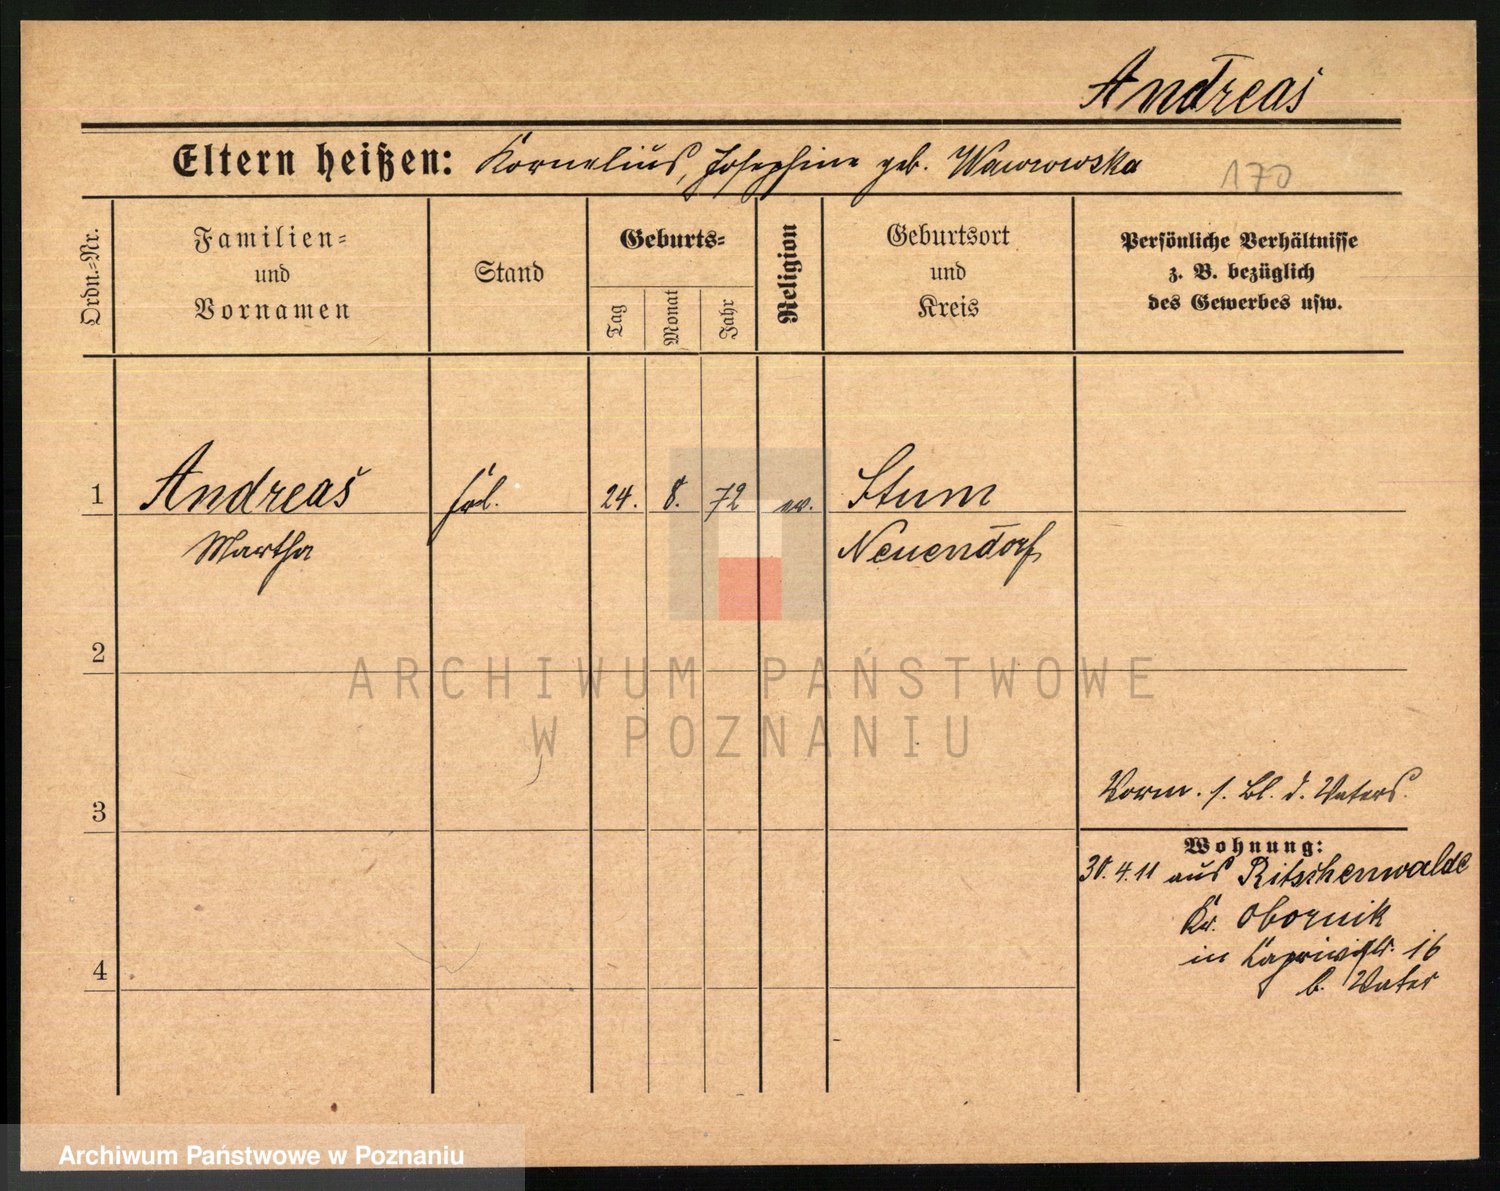 Andreas
Eltern heißen: Kornelius, Josephine geb. Wawrowska
170
Ordn.=Nr.
Familien=
und
Vornamen
Stand
Geburts=
Tag
Monat
Jahr
Religion
Geburtsort
und
Kreis
Persönliche Verhältnisse
z. B. bezüglich
des Gewerbes usw.
1 Andreas Frl. 24. 8. 72 ev. Stum
Martha Neuendorf
2
ARCHIWUM PAŃSTWOWE
W POZNANIU
3
Vorm. s. Bl. d. Vaters.
Wohnung:
30.4.11 aus Ritschenwalde
Kr. Obornik
in Kaprivistr. 16
b. Vater
4
Archiwum Państwowe w Poznaniu